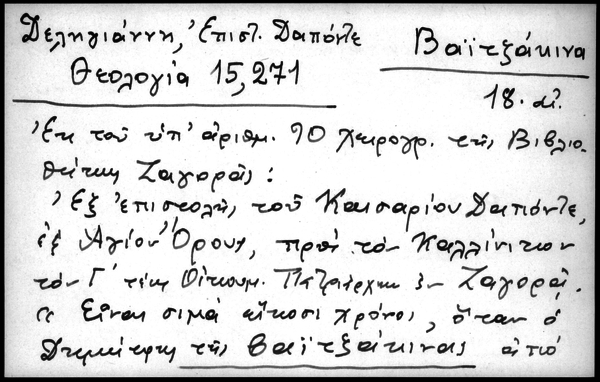 Δεληγιάννη, Ἐπιστ. Δαπόντε
Βαϊτζάκινα
Θεολογία 15,271
18. αἰ.
Ἐκ τοῦ ὑπ' ἀριθμ. 90 χειρογρ. τῆς Βιβλιο-
θήκης Ζαγορᾶς:
Ἐξ ἐπιστολῆς τοῦ Καισαρίου Δαπόντε,
ἐξ Ἁγίου Ὄρους, πρὸς τὸν Καλλίνικον
τὸν Γ' τέως Οἰκουμ. Πατριάρχην ἐν Ζαγορᾷ.
« Εἶναι σιμὰ εἴκοσι χρόνοι, ὅταν ὁ
Δημήτρης τῆς Βαϊτζάκινας ἀπὸ